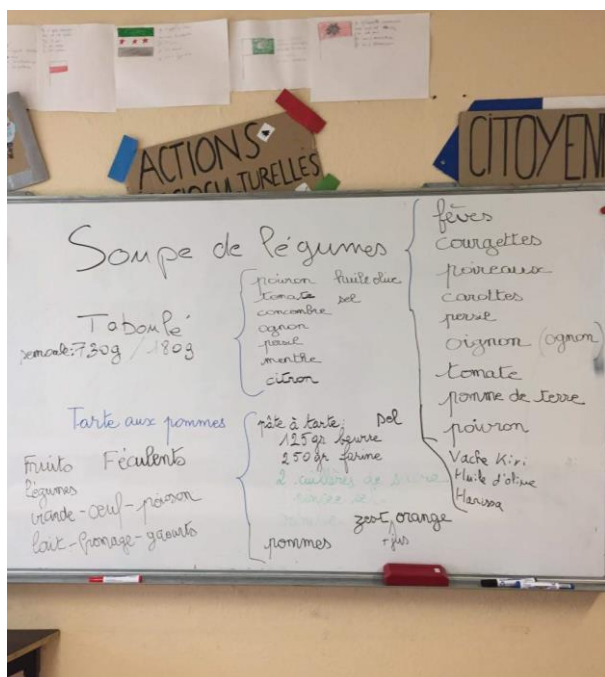 ACTIONS
SOCIOCULTURELLES
CITOYEN
Soupe de légumes
fèves
courgettes
poireaux
carottes
persil
oignon (ognon)
tomate
pomme de terre
poivron
Vache Kiri
Huile d'olive
Harissa
Taboulé
semoule: 730g / 180g
poivron huile olive
tomate sel
concombre
ognon
persil
menthe
citron
Tarte aux pommes
pâte à tarte: sel
125gr beurre
250gr farine
2 cuillères de sucre
zest orange
+ jus
pommes
Fruits Féculents
légumes
viande - œuf - poisson
lait - fromage - yaourts